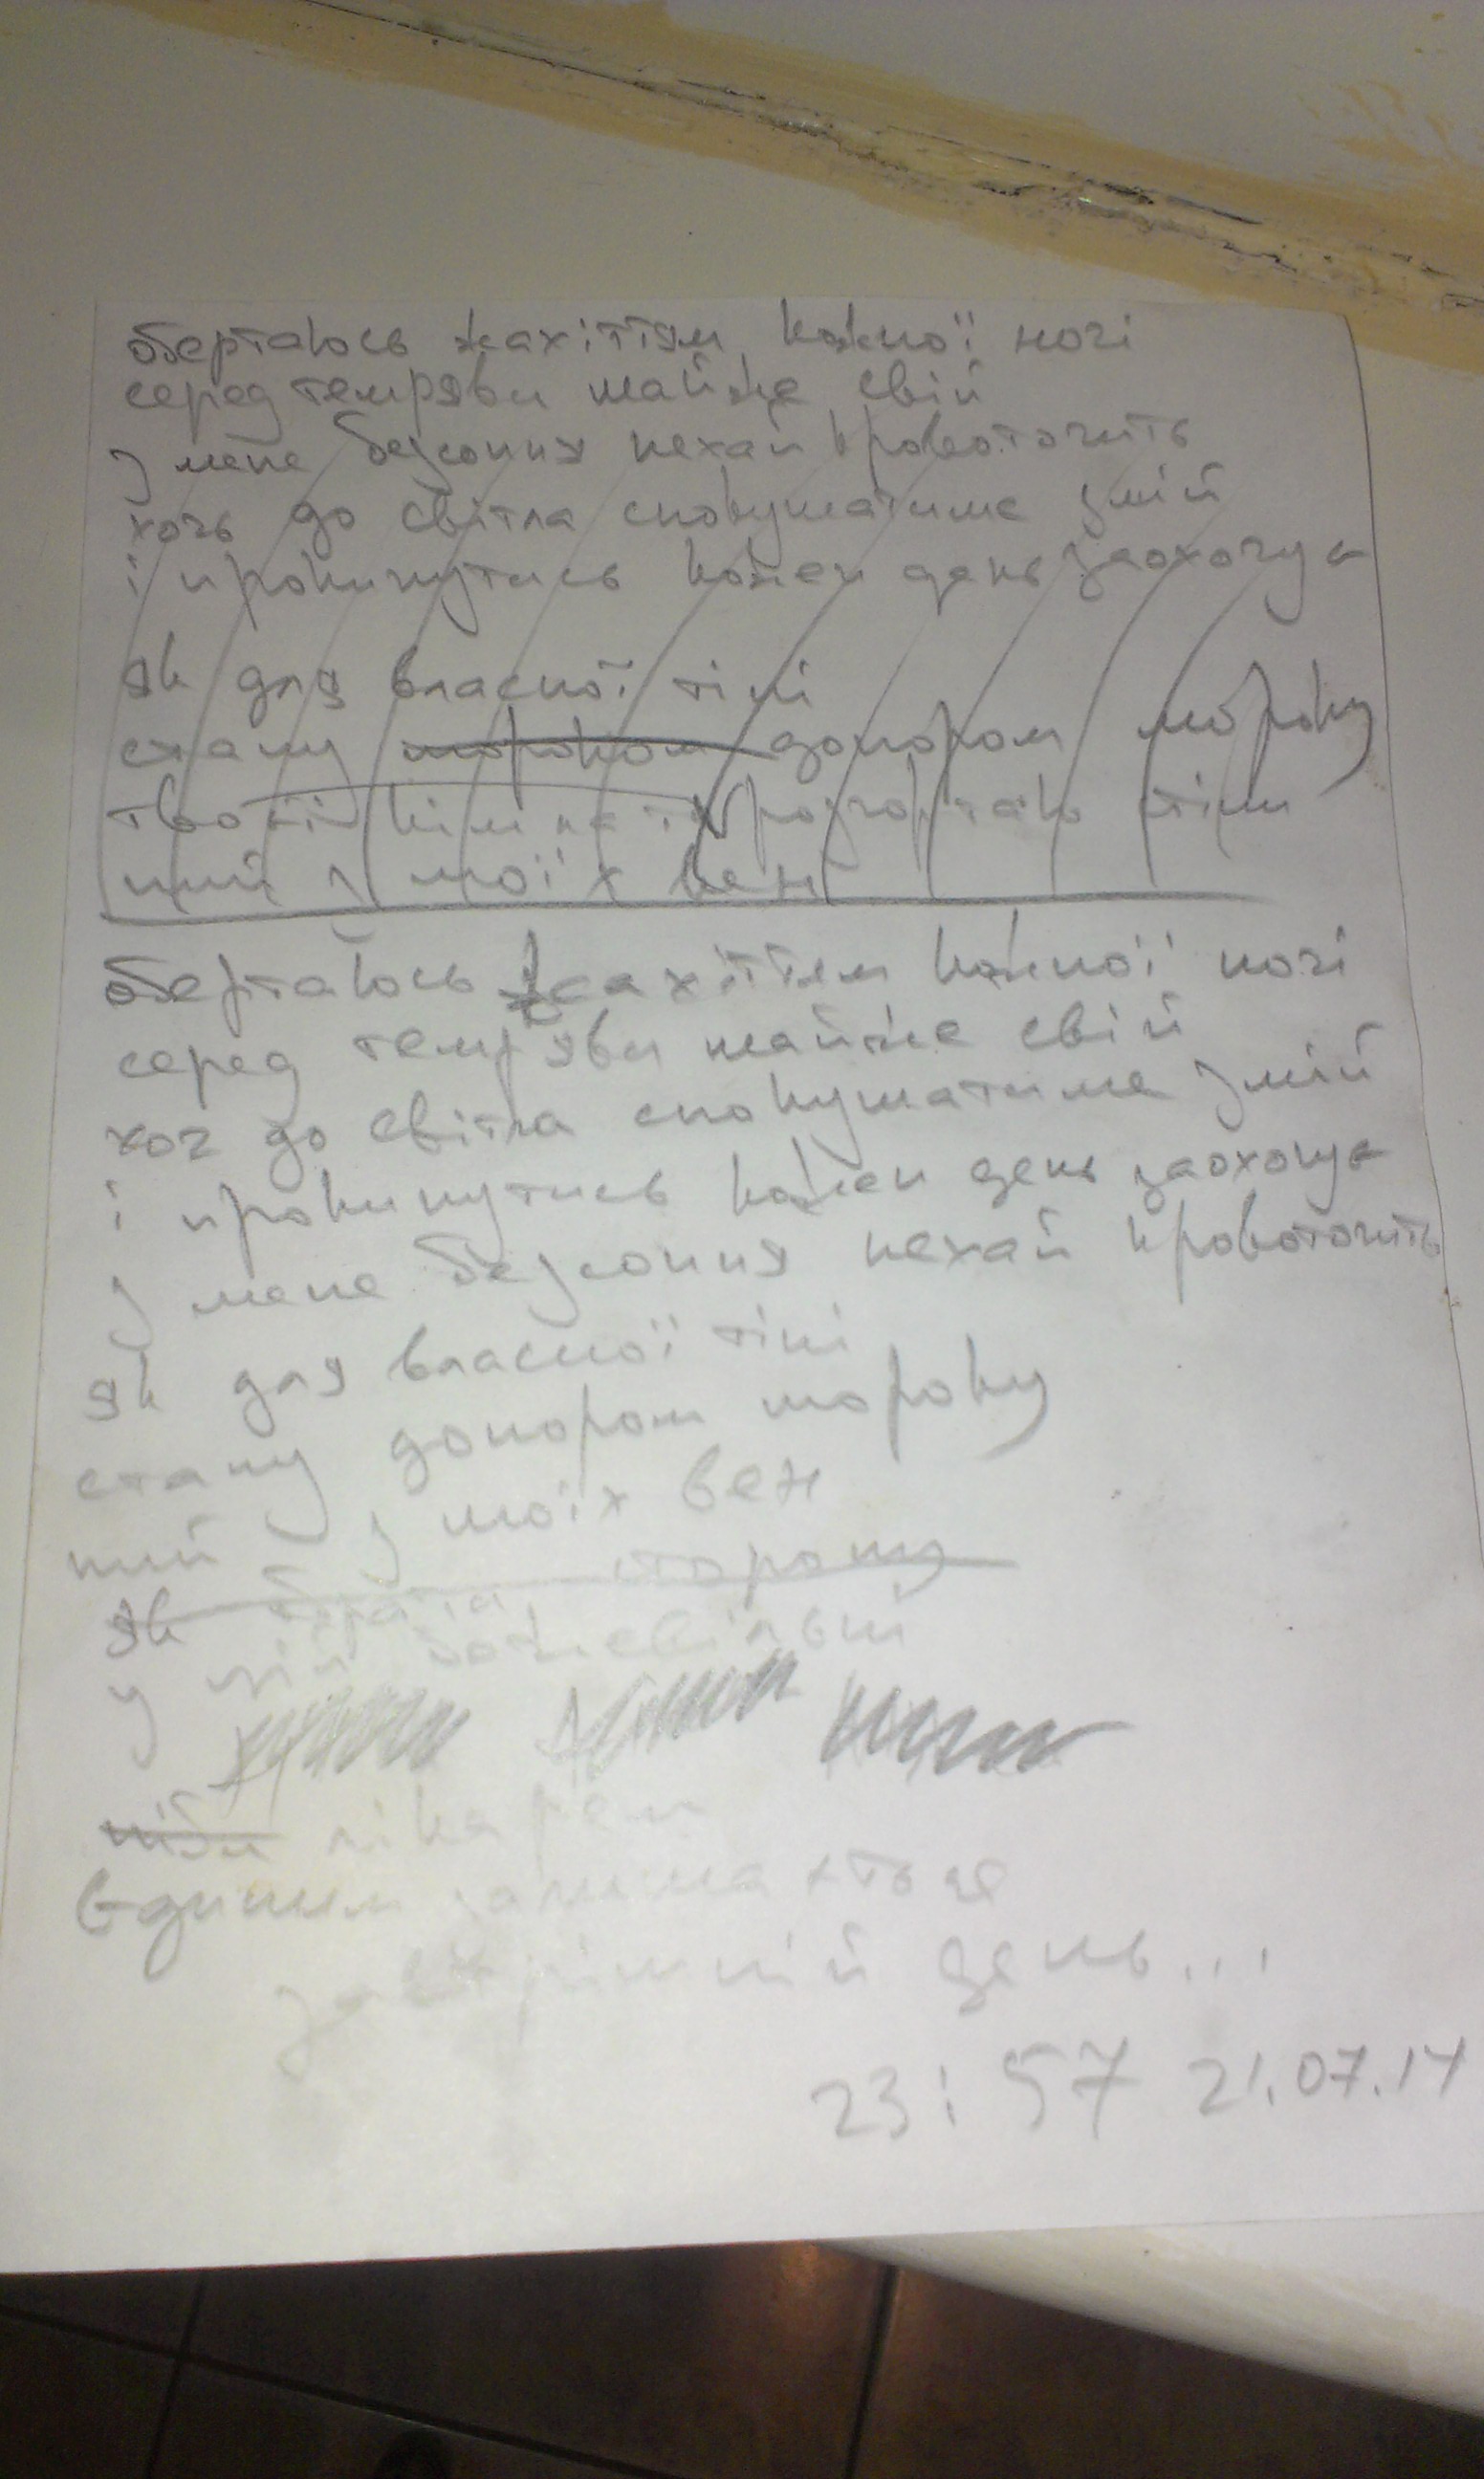 обертаюсь жахіттям кожної ночі
серед темряви майже свій
з мене безсоння нехай кровоточить
хочь до світла спокушатиме змій
і прокинутись кожен день заохочує
як для власної тіні
стану мороком донором мороку
твоїй кімнаті розгортаю тіни
пий з моїх вен
обертаюсь жахіттям кожної ночі
серед темряви майже свій
хоч до світла спокушатиме змій
і прокинутись кожен день заохочує
з мене безсоння нехай кровоточить
як для власної тіні
стану донором мороку
пий з моїх вен
як
у цій божевільні
ніби лікарем
Єдиним залишається
завтрішній день...
23:57 21.07.14